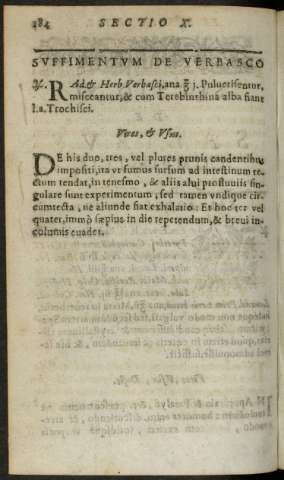 184 SECTIO X.
SVFFIMENTVM DE VERBASCO
℞. RAd. & Herb. Verbasci, ana ℥ j. Puluerisentur,
misceantur, & cum Terebinthina alba fiant
l.a. Trochisci.
Vires, & Vsus.
DE his duo, tres, vel plures prunis candentibus
impositi, ita vt fumus sursum ad intestinum re-
ctum tendat, in tenesmo, & aliis alui profluuiis sin-
gulare sunt experimentum, sed tamen vndique cir-
cumtecta, ne aliunde fiat exhalatio: Et hoc ter vel
quater, immò sæpius in die repetendum, & breui in-
columis euadet.